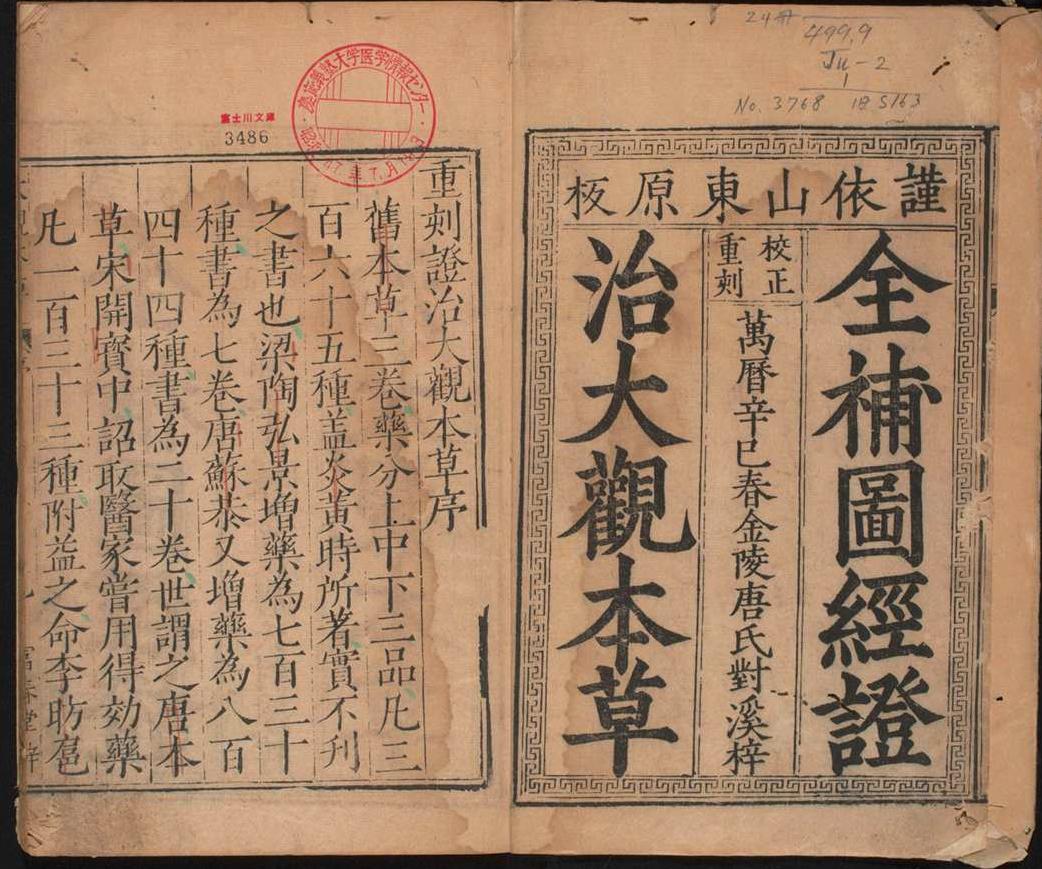 24冊
499.9
Ju-2
1
No. 3768
謹依山東原板
全補圖經證
校正
重刻
萬曆辛巳春金陵唐氏對溪梓
治大觀本草
慶應義塾大学医学情報センター
富士川文庫
3486
重刻證治大觀本草序
舊本草三卷藥分上中下三品凡三
百六十五種盖炎黃時所著實不刋
之書也梁陶弘景增藥為七百三十
種書為七卷唐蘇恭又增藥為八百
四十四種書為二十卷世謂之唐本
草宋開寳中詔取醫家嘗用得効藥
凡一百三十三種附益之命李昉扈
富春堂梓